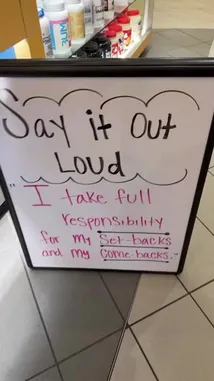 Say it Out
Loud
"I take full
responsibility
for my Set-backs
and my Come-backs."